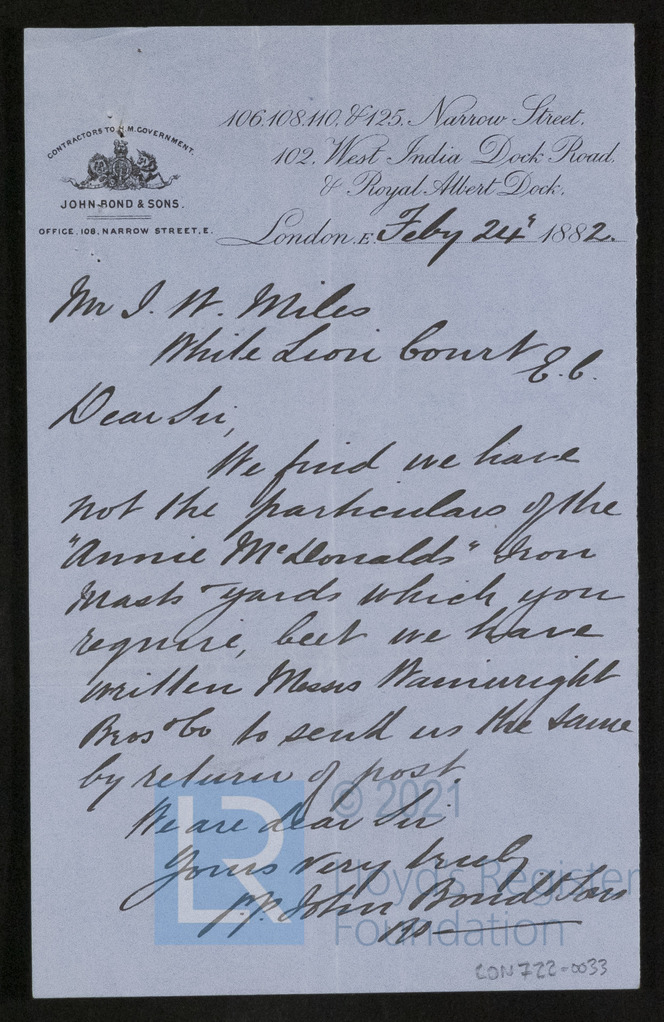 CONTRACTORS TO H.M. GOVERNMENT.
JOHN BOND & SONS.
OFFICE, 108, NARROW STREET, E.
106.108.110, & 125, Narrow Street,
102, West India Dock Road,
& Royal Albert Dock,
London, E. Feby 24" 1882.
Mr J. W. Miles
White Lion Court E.C.
Dear Sir,
We find we have
not the particulars of the
"Annie McDonalds" Iron
Masts & yards which you
require, but we have
written Messrs Wainwright
Bros & Co to send us the same
by return of post.
We are dear Sir
Yours very truly
pp. John Bond & Sons
LR
© 2021
Lloyd's Register
Foundation
LON722-0033